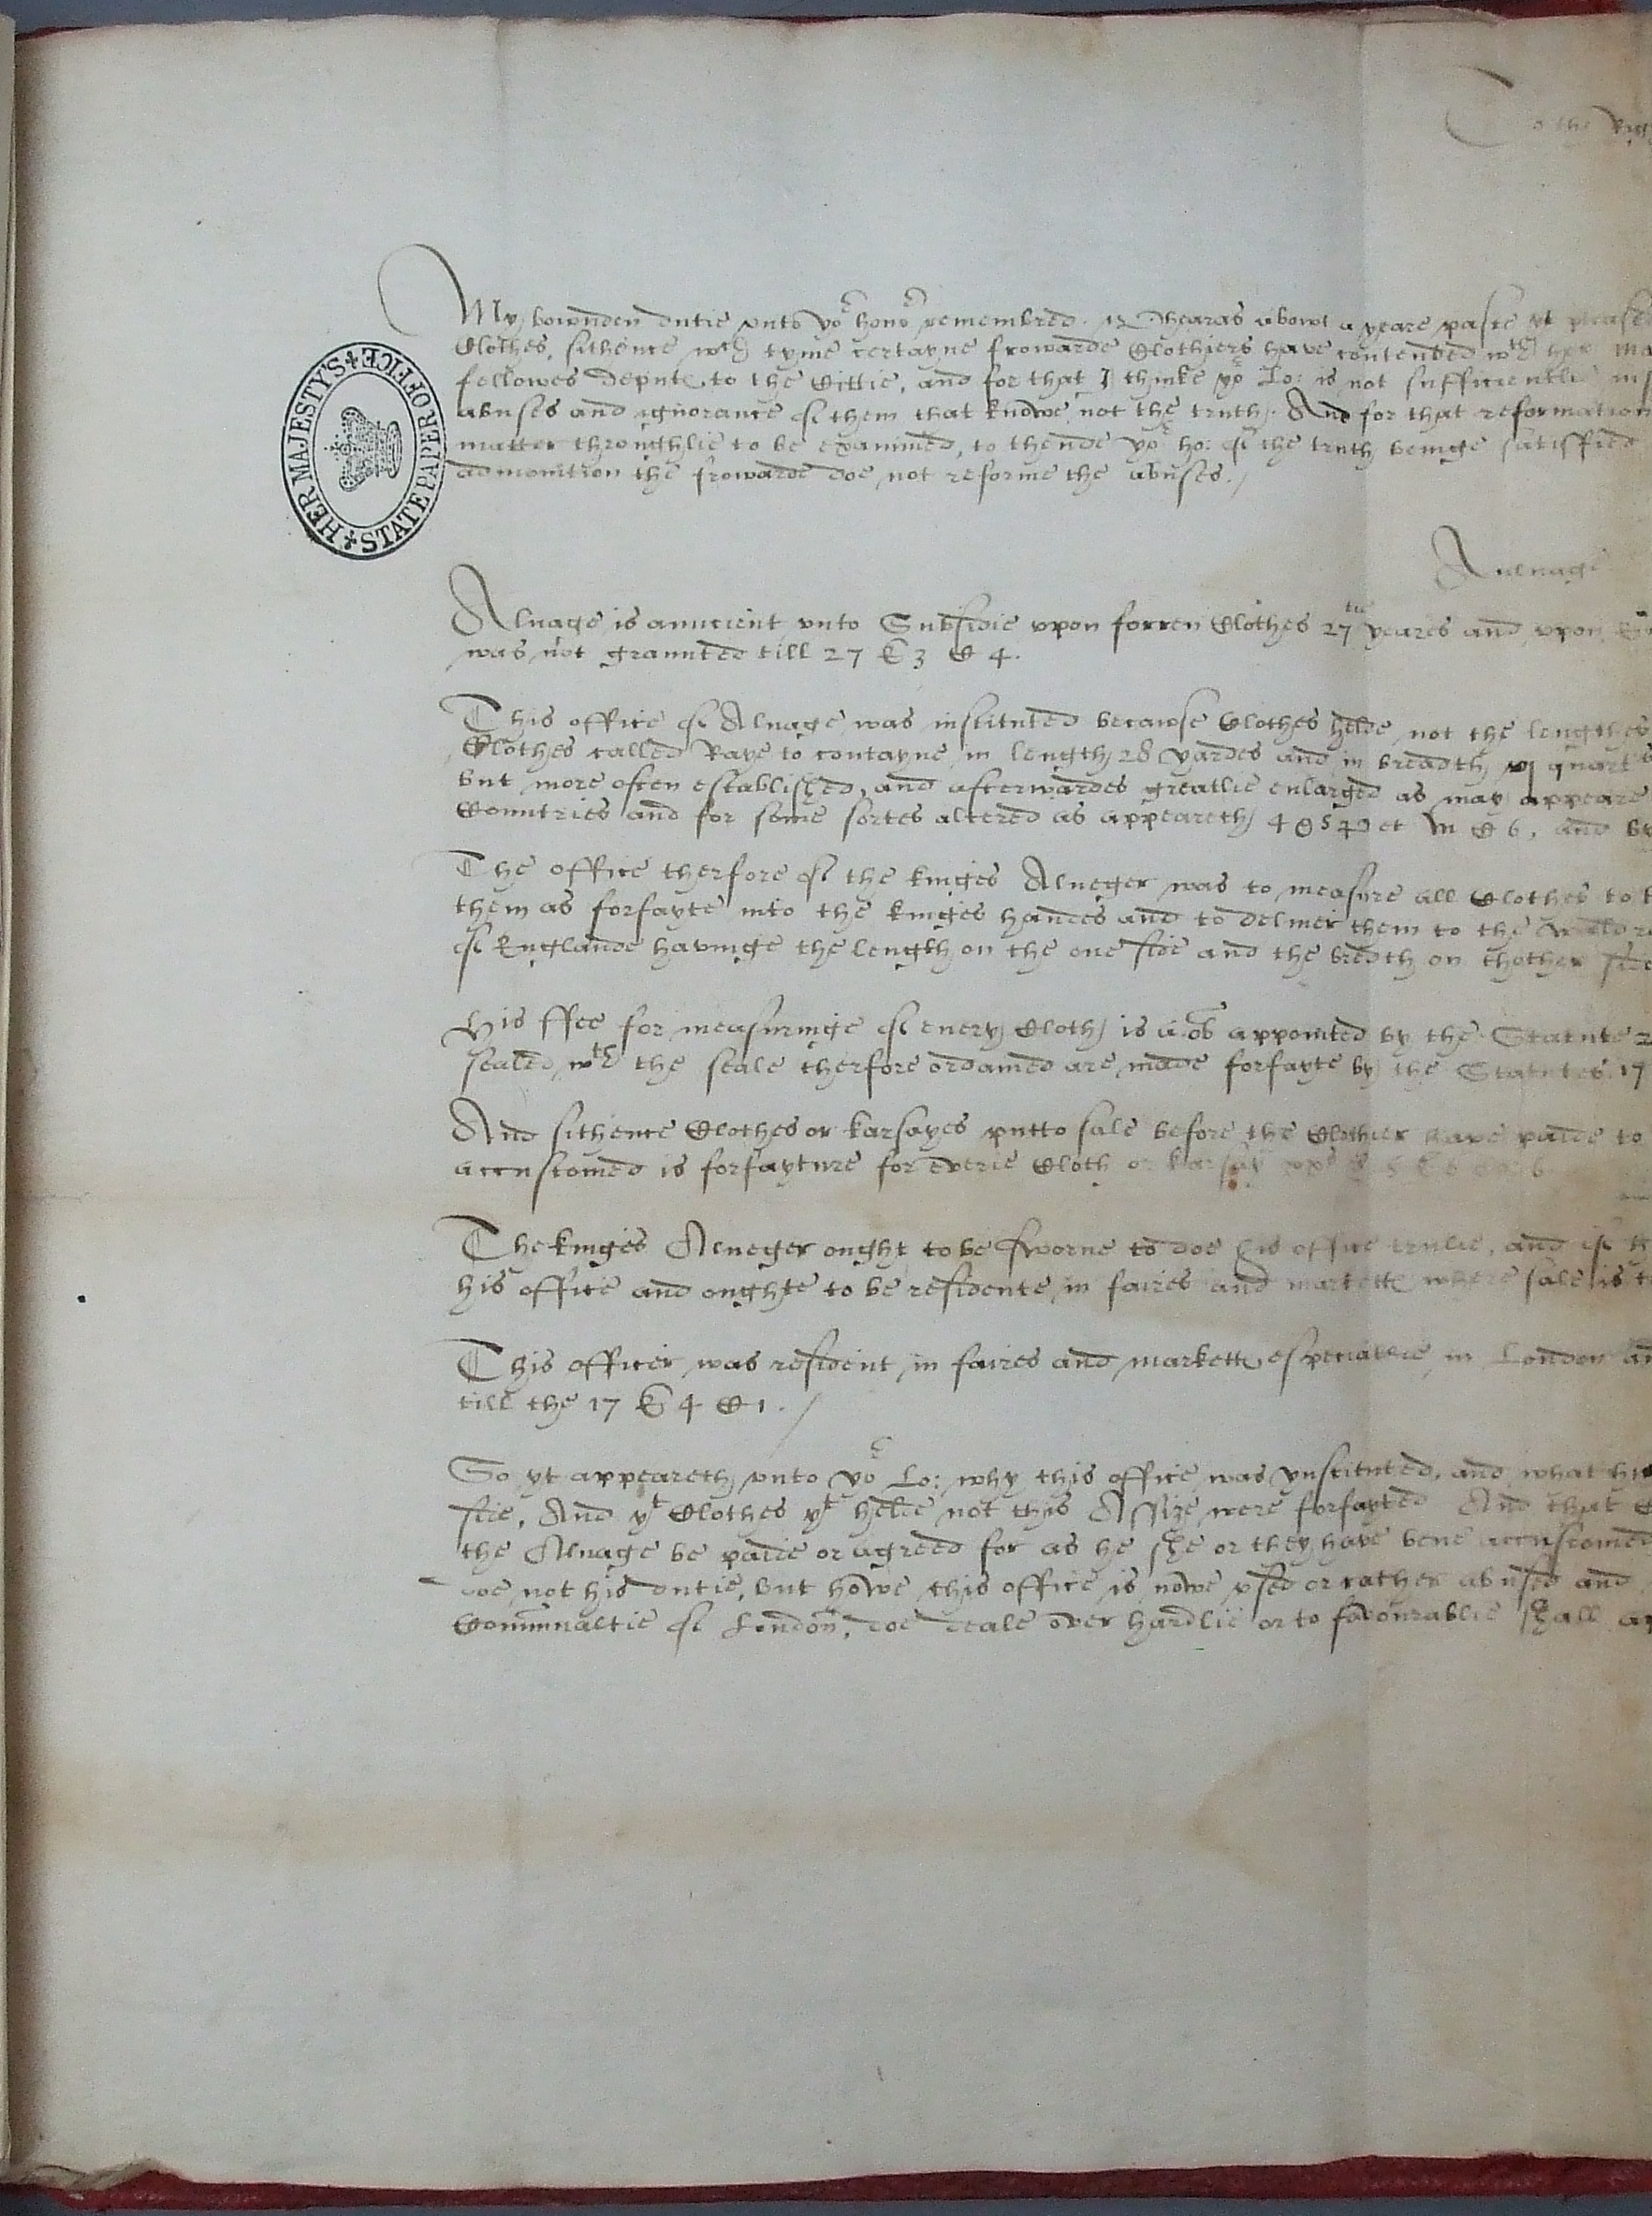 To the Rig
My bownden dutie vnto yor honor remembred. Whearas abowt a yeare paste yt please
Clothes, sithence wch tyme certayne frowarde Clothiers have contended wth her Ma
fellowes deputes to the Cittie, and for that I thinke yor Lo: is not sufficientlie ins
abuses and ignorance of them that knowe not the truth. And for that reformation
matter throughlie to be examined, to thende yor ho: of the truth beinge satisfied
admonition the frowarde doe not reforme the abuses./
HER MAJESTY'S STATE PAPER OFFICE
Aulnage
Alnage is anncient vnto Subsidie vpon forren Clothes 27tie yeares and vpon
was not graunted till 27 E 3 C 4.
This office of Alnage was instituted becawse Clothes helde not the lengthes
Clothes called Raye to contayne in length 28 yardes and in breadth vj quart
but more often established, and afterwardes greatlie enlarged as may appeare
Countries and for some sortes altered as appeareth 4 & 5 et C 6, and by
The office therfore of the kinges Alneger was to measure all Clothes to
them as forfayte into the kinges handes and to deliuer them to the
of Englande havinge the length on the one side and the bredth on thother side
His ffee for measuringe of euery Cloth is ob appointed by the Statute 2
sealed wth the seale therfore ordained are made forfayte by the Statutes 17
And sithence Clothes or karsayes putto sale before the Clothier have paide to
accustomed is forfayture for everie Cloth or karsay
The kinges Alneger ought to be sworne to doe his office trulie, and if
his office and oughte to be residente in faires and markettes where sale is
This officer was resident in faires and markettes especiallie in London an
till the 17 E 4 C 1./
So yt appeareth vnto yor Lo: why this office was ynstituted, and what his
ffee, And yt Clothes yt helde not this Assize were forfayted And that
the Alnage be paide or agreed for as he she or they have bene accustomed
doe not his dutie, but howe this office is nowe vsed or rather abused and
Comminaltie of London, doe deale over hardlie or to favourablie shall ap